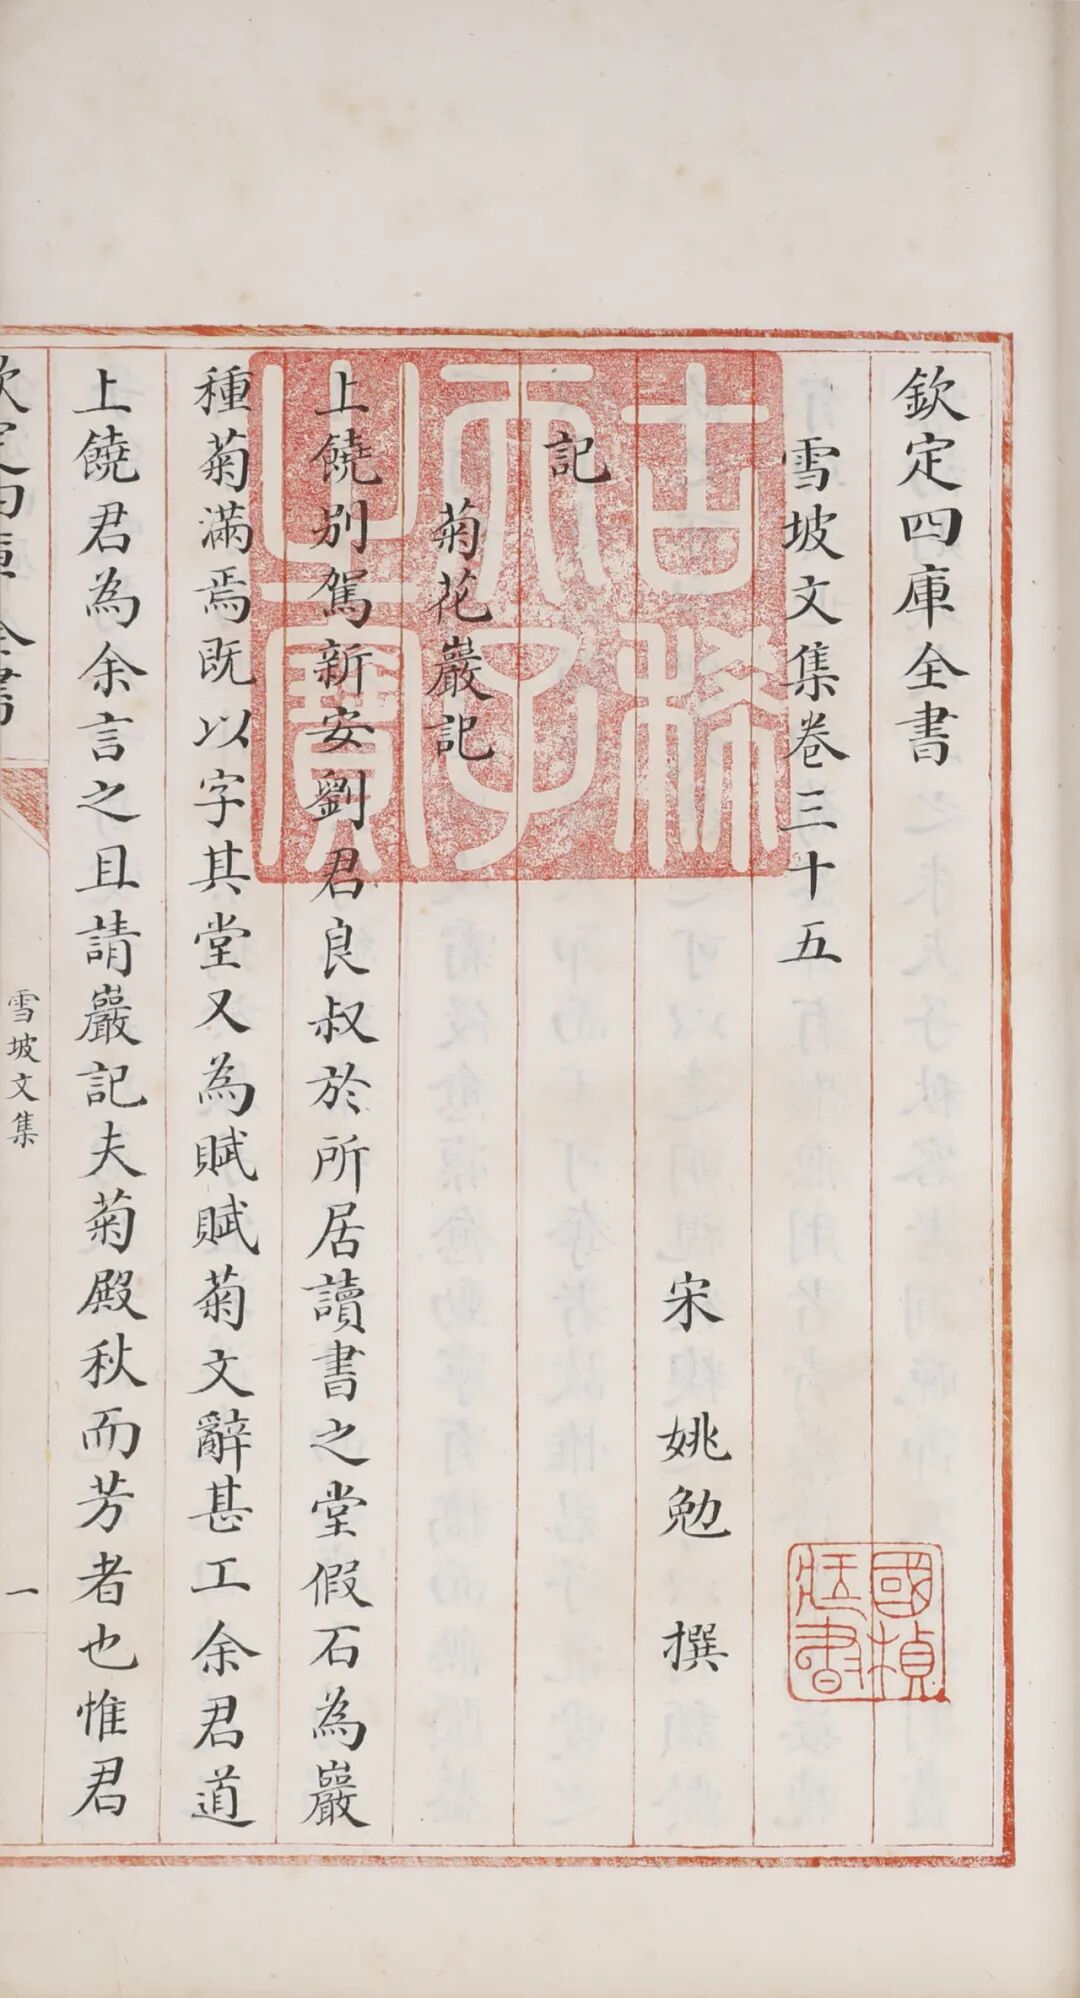 欽定四庫全書
雪坡文集卷三十五
宋 姚勉 撰
記
菊花巖記
上饒別駕新安劉君良叔於所居讀書之堂假石為巖
種菊滿焉既以字其堂又為賦賦菊文辭甚工余君道
上饒君為余言之且請巖記夫菊殿秋而芳者也惟君
欽定四庫全書
雪坡文集
一
古稀天子之寶
國楨